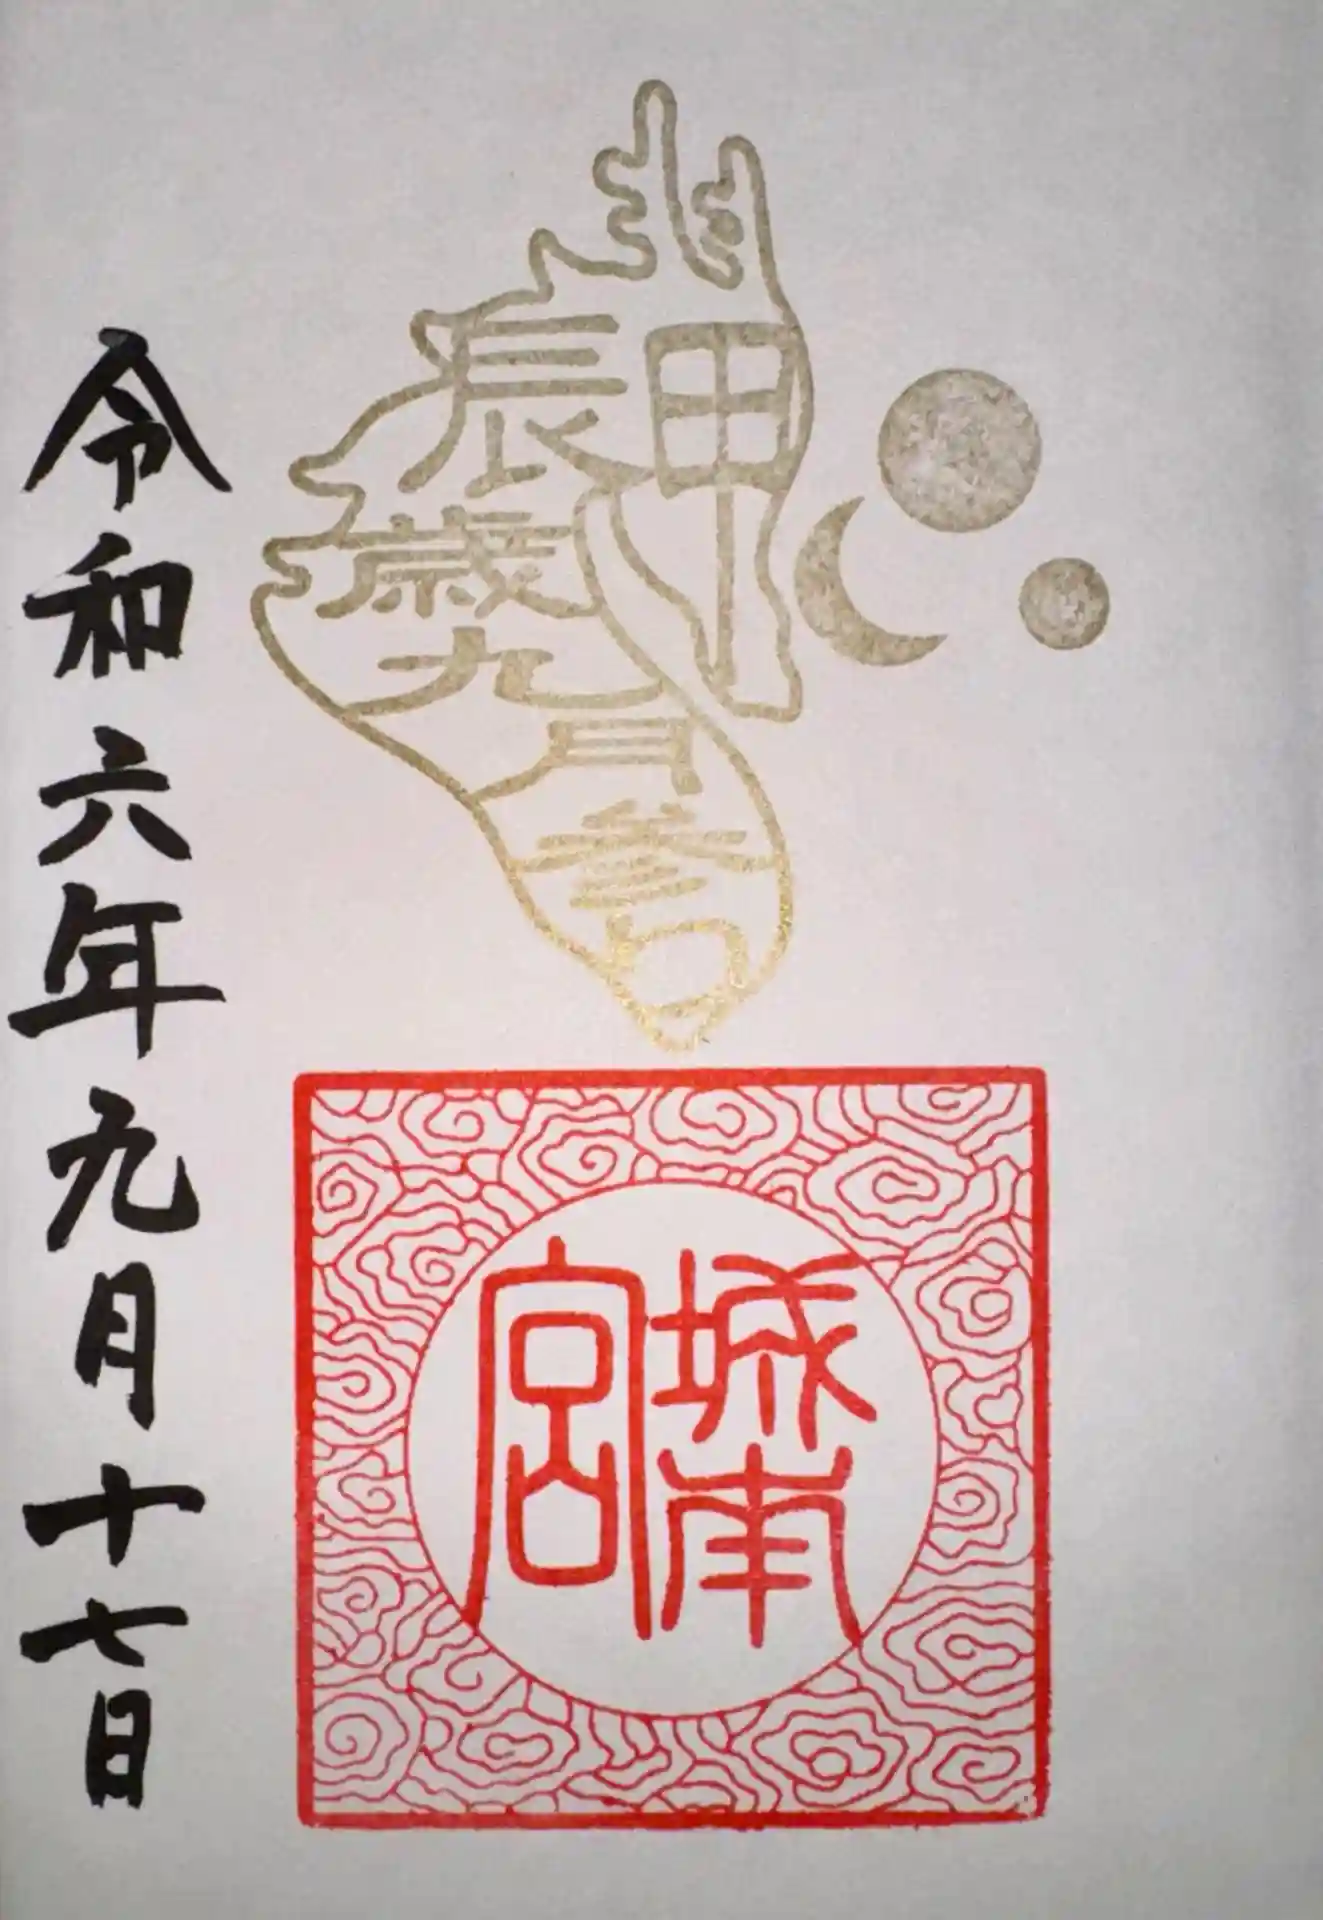 甲
辰
歳
九
月
参
拝
城南
宮
令和六年九月十七日